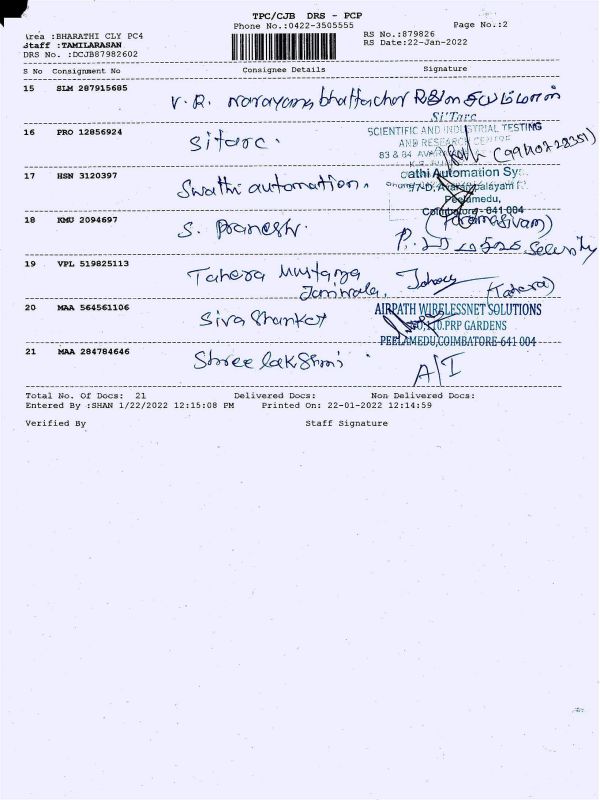 TPC/CJB DRS - PCP
Phone No.:0422-3505555 Page No.:2
Area :BHARATHI CLY PC4 RS No.:879826
Staff :TAMILARASAN RS Date:22-Jan-2022
DRS No. :DCJB87982602
S No Consignment No Consignee Details Signature
15 SLM 287915685 V. R. Narayana bhattachar
Si'Tarc
16 PRO 12856924 Sitarc. SCIENTIFIC AND INDUSTRIAL TESTING
AND RESEARCH CENTRE
83 & 84
17 HSN 3120397 Swathi automation. athi Automation Sy
97-D, Avarampalayam
Peelamedu,
Coimbatore - 641 004
18 KMU 2094697 S. Pranesh. (Paramasivam)
Security
19 VPL 519825113 Tahera Mustafa
(Tahera)
20 MAA 564561106 Siva Shanker AIRPATH WIRELESSNET SOLUTIONS
PRP GARDENS
PEELAMEDU,COIMBATORE-641 004
21 MAA 284784646 Shree lakshmi A/I
Total No. Of Docs: 21 Delivered Docs: Non Delivered Docs:
Entered By :SHAN 1/22/2022 12:15:08 PM Printed On: 22-01-2022 12:14:59
Verified By Staff Signature